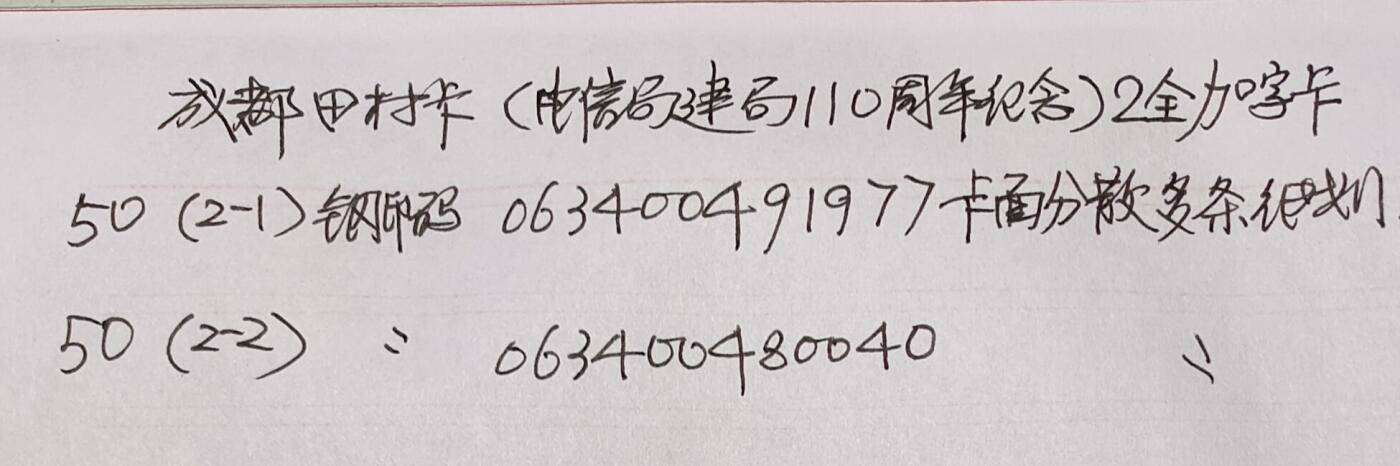 成都田村卡(电信局建局110周年纪念)2全加字卡
50 (2-1) 钢印码 063400491977 卡面分散多条细划
50 (2-2) 〃 063400480040 〃